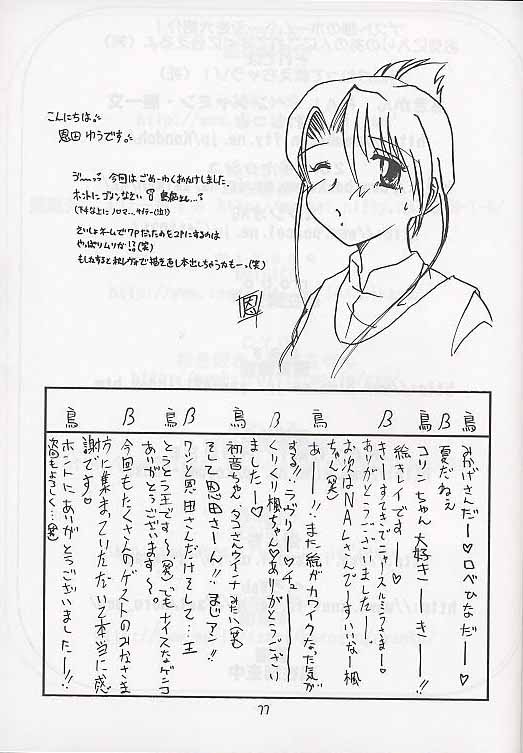 こんにちは。
恩田ゆうです。
う〜〜っ 今回はごめーわくおかけしました
ホントにゴメンなさい
(下手な上にノロマ…サイテー(泣))
さいしょネームで7Pだったのを3Pにするのは
やっぱりムリか!?(笑)
恩
鳥 みかげさんだー♡ロベひなだー♡
β 夏だねぇ
鳥 コリンちゃん大好きーーきーー!!
β 絵キレイですーー♡
ありがとうございましたー♡
お次はNALさんでーすいいなー楓
ちゃん(笑)
鳥 あーー!!また絵がカワイクなった気が
する!!ラヴリーー♡チ。
くりくり楓ちゃん♡ありがとうござい
ましたー♡
鳥 初音ちゃん、タコさんウィンナみたい(笑)
β そして恩田さーん!!
鳥 ワシと恩田さんだけそして…王
とうとう王です〜(笑)でもナイスなゲンコ
ありがとうございます〜。
β 今回もたくさんのゲストのみなさま
方に集まっていただいて本当に感
謝です♡
鳥 ホントにありがとうございましたー!!
次回もよろしく…(笑)
77